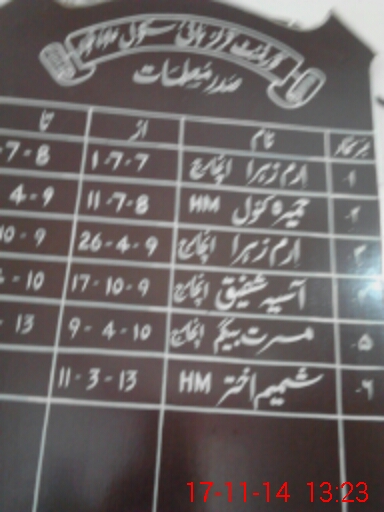 گورنمنٹ گرلز ہائی سکول
صدر معلمات
نمبر شمار نام از تا
۱۔ ارم زہرا انچارج 1-7-7 7-8
۲۔ حمیرہ کنول HM 11-7-8 4-9
۳۔ ارم زہرا انچارج 26-4-9 10-9
۴۔ آسیہ شفیق انچارج 17-10-9 -10
۵۔ مسرت بیگم انچارج 9-4-10 -13
۶۔ شمیم اختر HM 11-3-13
17-11-14 13:23